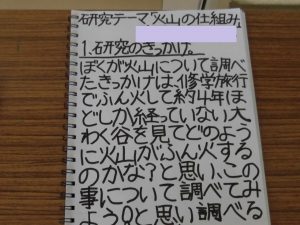 研究テーマ「火山の仕組み」
1.研究のきっかけ。
ぼくが火山について調べ
たきっかけは、修学旅行
でふん火して約4年ほ
どしか経っていない大
わく谷を見てどのよう
に火山がふん火する
のかな?と思い、この
事について調べてみ
ようと思い調べる